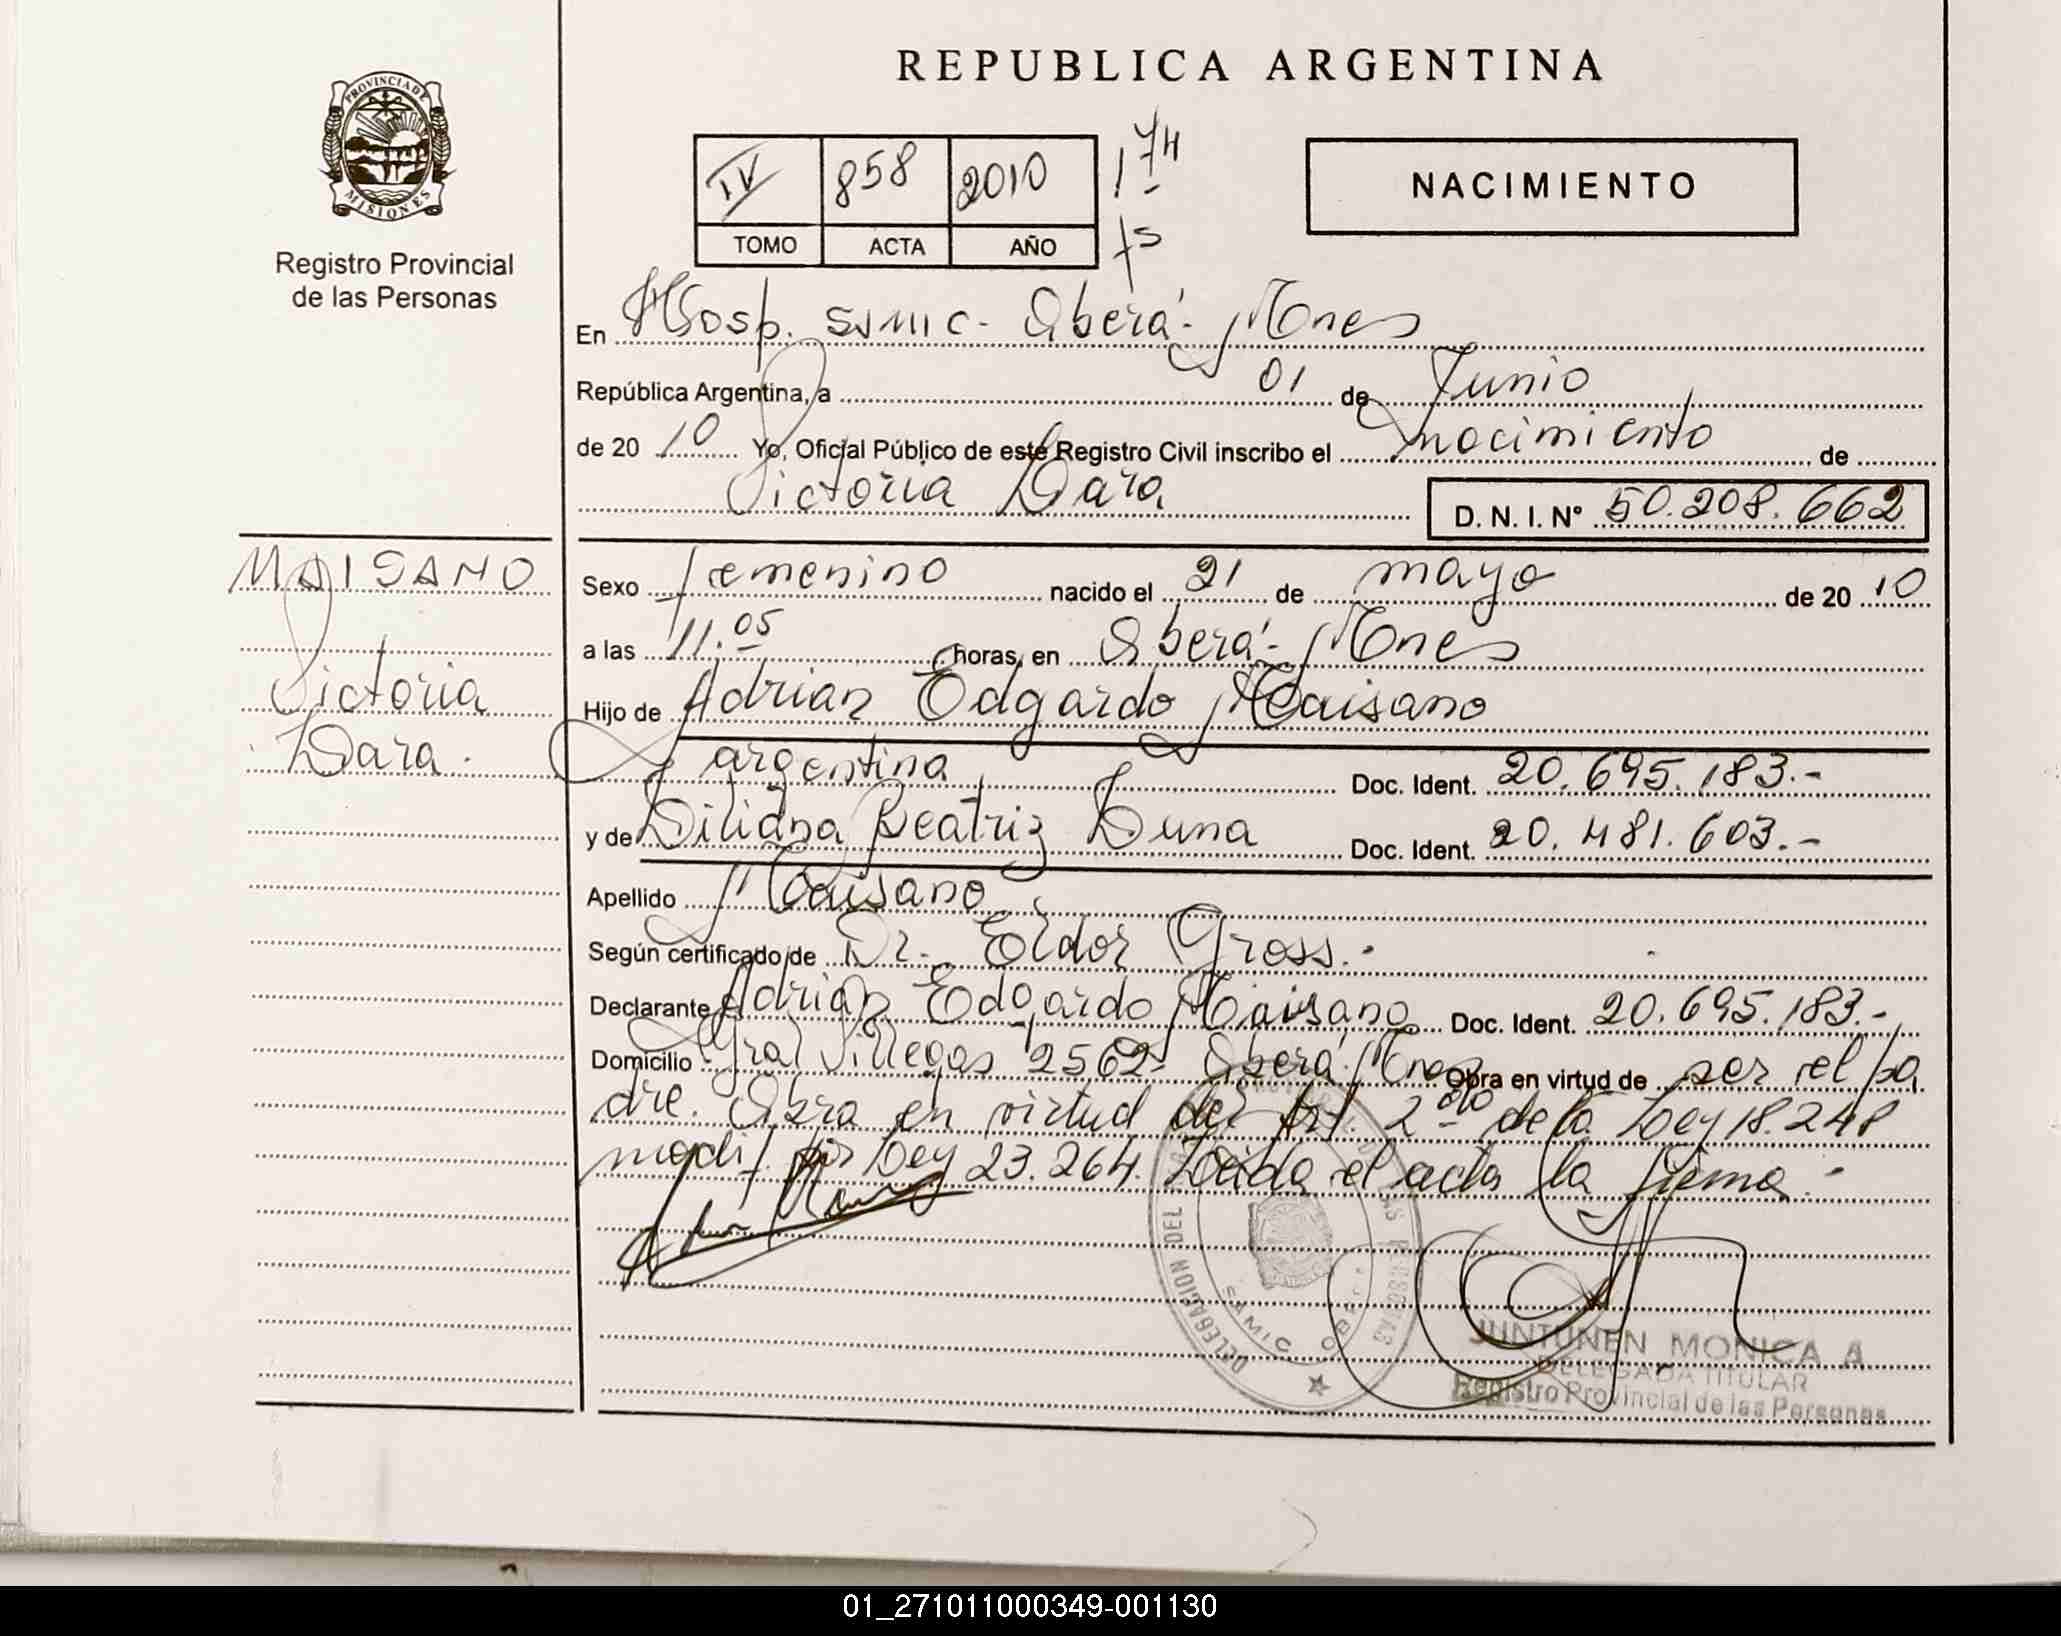 REPUBLICA ARGENTINA
PROVINCIA DE
MISIONES
Registro Provincial
de las Personas
IV 858 2010 174
TOMO ACTA AÑO
NACIMIENTO
En Hosp. SAMIC - Oberá - Mnes
República Argentina, a 01 de Junio
de 20 10 Yo, Oficial Público de este Registro Civil inscribo el nacimiento de
Victoria Lara
D. N. I. N° 50.208.662
MAISANO
Victoria
Lara.
Sexo femenino nacido el 21 de mayo de 20 10
a las 11.05 horas, en Oberá - Mnes
Hijo de Adrian Edgardo Maisano
argentina Doc. Ident. 20.695.183.-
y de Liliana Beatriz Luna Doc. Ident. 20.481.603.-
Apellido Maisano
Según certificado de Dr. Eldor Gross.-
Declarante Adrian Edgardo Maisano Doc. Ident. 20.695.183.-
Domicilio Gral Villegas 2562 - Oberá Mnes Obra en virtud de ser el pa
dre. Obra en virtud del Art. 2do de la Ley 18.248
modif. por Ley 23.264. Leida el acta la firma.-
DELEGACION DEL
SAMIC OBERA
JUNTUNEN MONICA A
DELEGADA TITULAR
Registro Provincial de las Personas
01_271011000349-001130